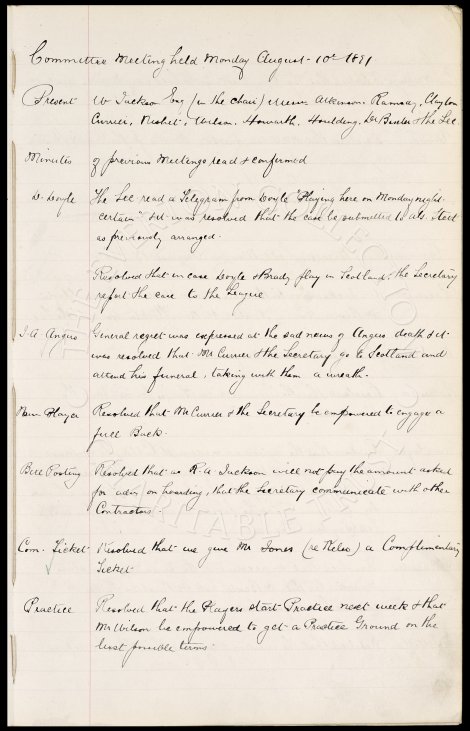 Committee Meeting held Monday August 10th 1891
Present W Jackson Esq (in the chair) Messrs Atkinson, Ramsay, Clayton
Currier, Nisbet, Wilson, Howarth, Houlding, Dr Baxter & the Sec.
Minutes of previous Meetings read & confirmed
D. Doyle The Sec read a Telegram from Doyle "Playing here on Monday night
certain" & it was resolved that the case be submitted to
as previously arranged.
Resolved that in case Doyle & Brady play in Scotland, the Secretary
report the case to the League
J A Angus General regret was expressed at the sad news of Angus death & it
was resolved that Mr Currier & the Secretary go to Scotland and
attend his funeral, taking with them a wreath.
New Player Resolved that Mr Currier & the Secretary be empowered to engage a
full Back.
Bill Posting Resolved that as R. A. Jackson will not pay the amount asked
for advs on hoarding, that the Secretary communicate with other
Contractors.
Com. Ticket Resolved that we give Mr Jones (re ) a Complimentary
Ticket
Practice Resolved that the Players start Practice next week & that
Mr Wilson be empowered to get a Practice Ground on the
best possible terms.